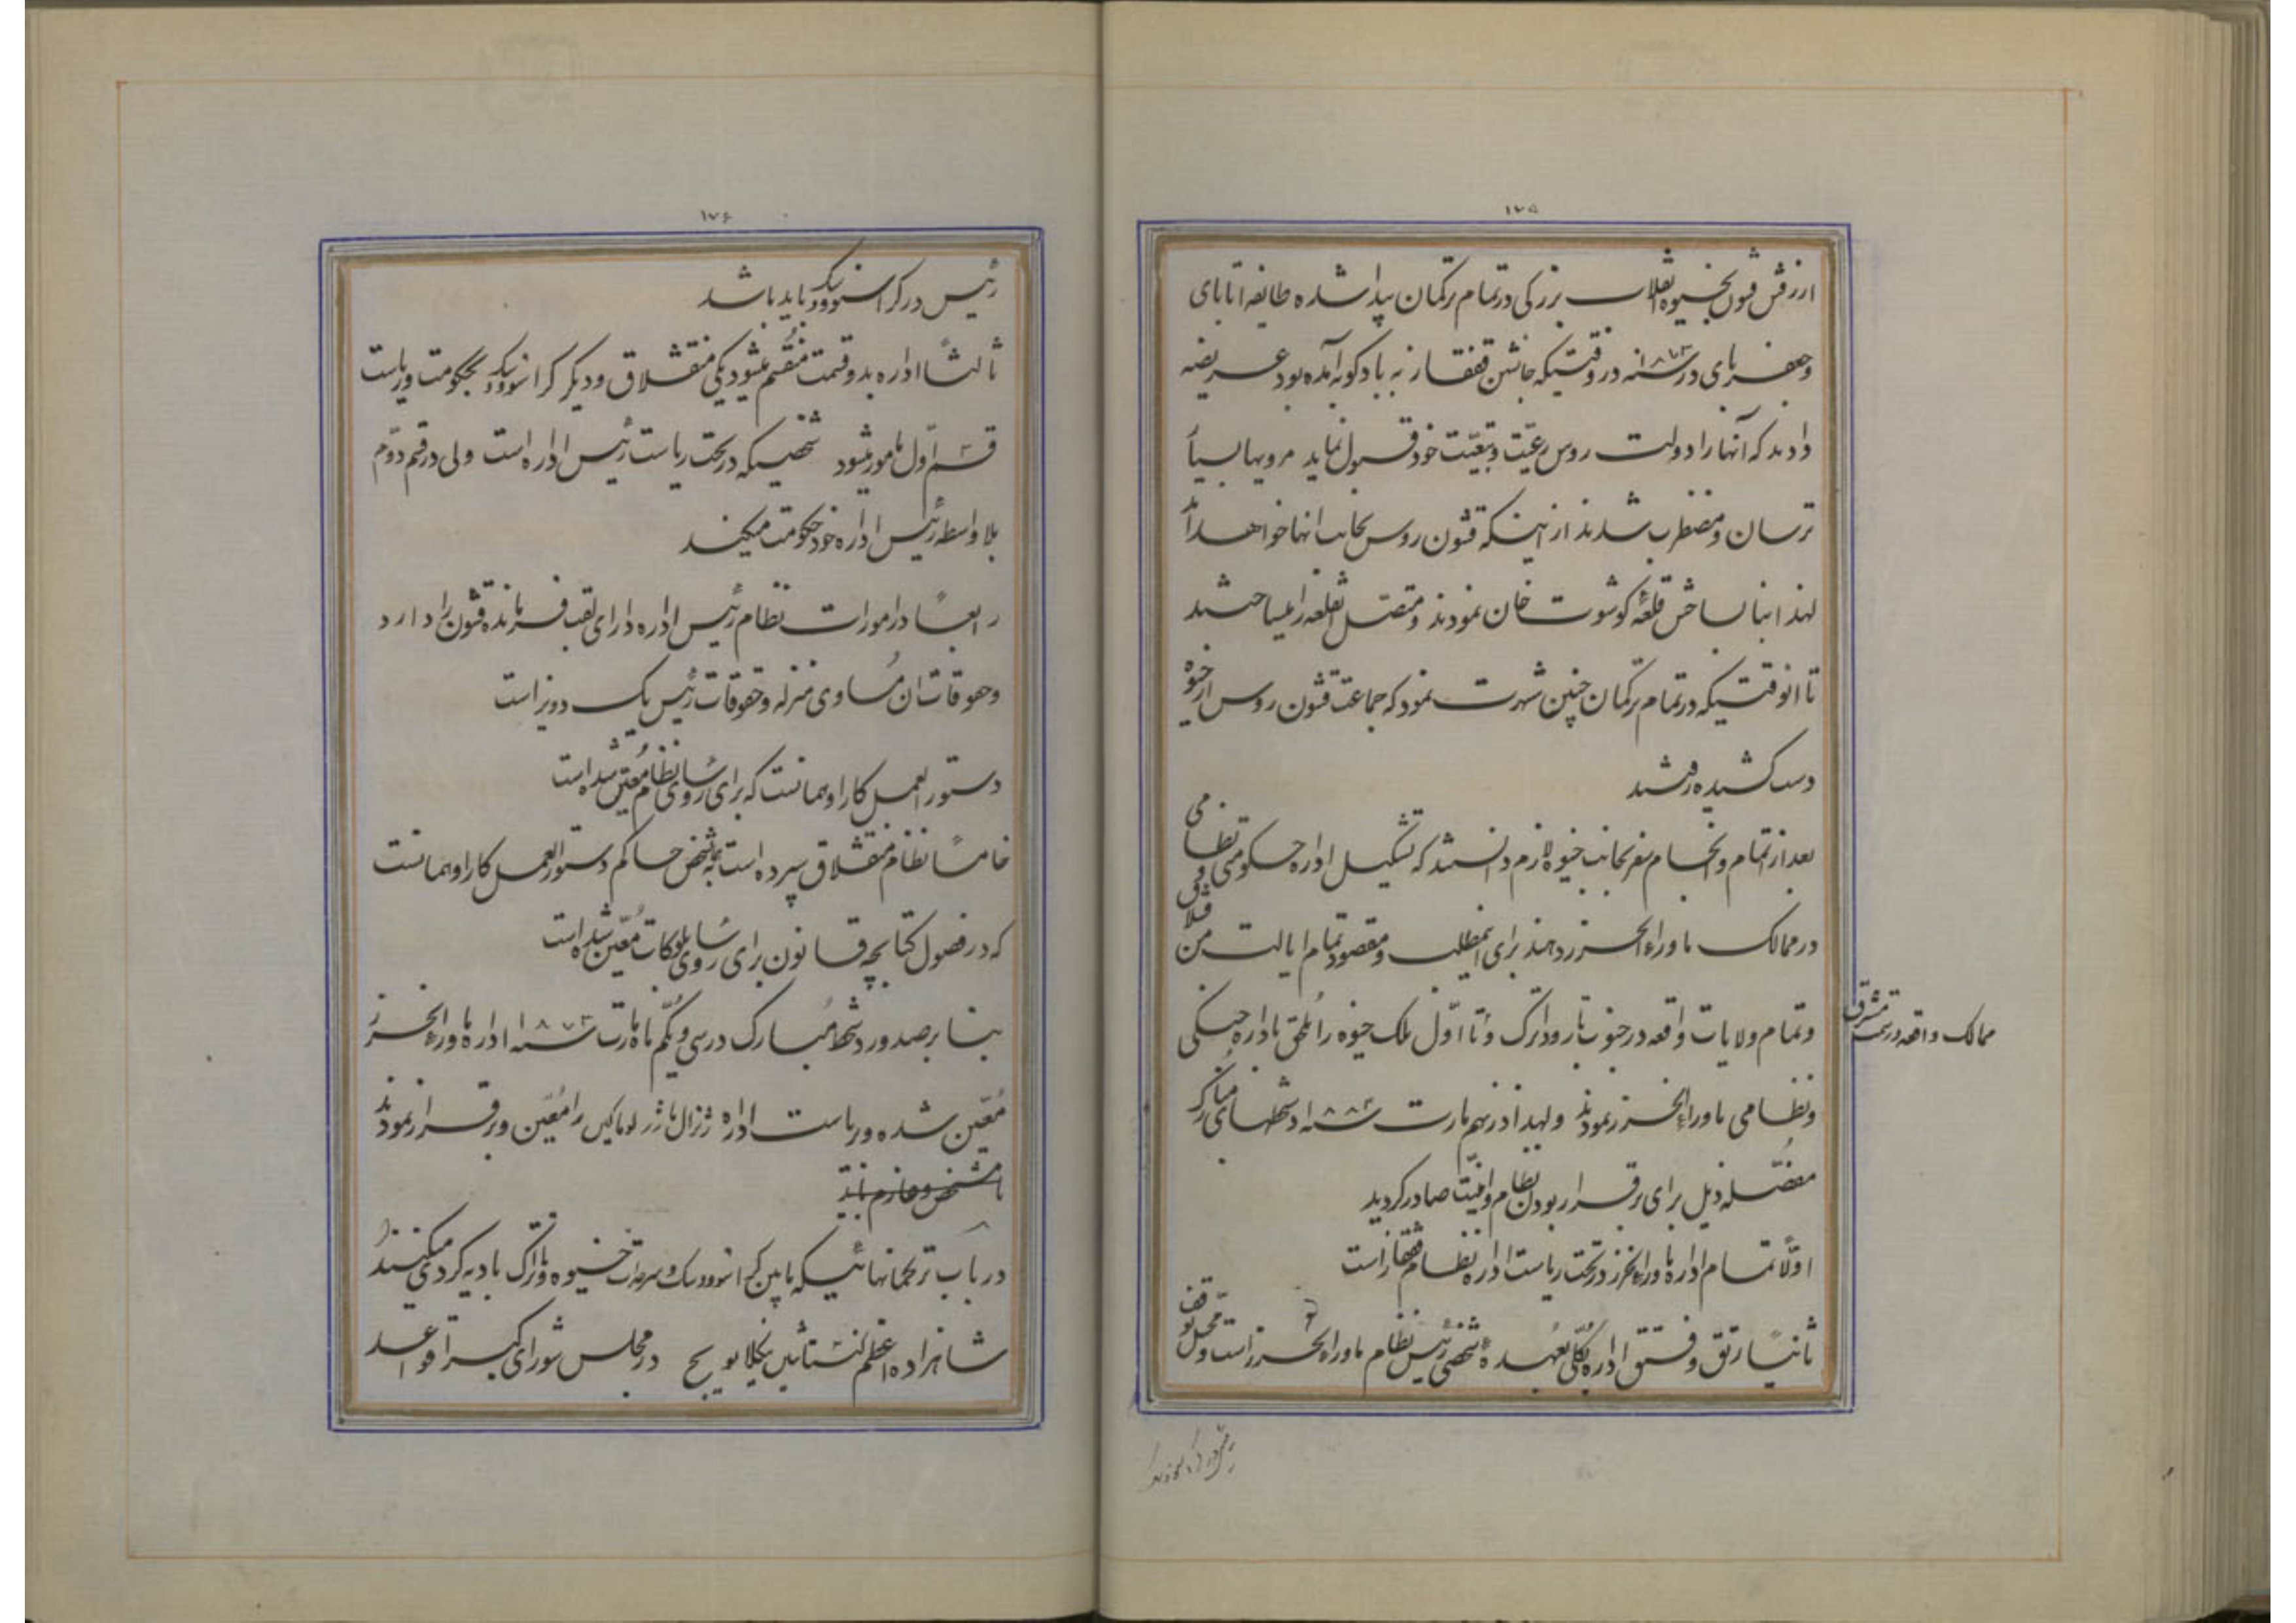 ۱۷۵
از رفتن قشون بخیوه انقلاب بزرکی در تمام ترکمان پیدا شده طایفه اتابای
وجعفربای در سنه ۱۸۷۳ در وقتیکه جانشین قفقاز به بادکوبه آمده بود عریضه
دادند که آنها را دولت روس رعیّت و تبعیّت خود قبول نماید مرویها بسیار
ترسان و مضطرب شدند از اینکه قشون روس بجانب انها خواهد آمد
لهذا بنای ساختن قلعهٔ کوشوت خان نمودند و متصّل قلعه را میساختند
تا انوقتیکه در تمام ترکمان چنین شهرت نمود که جماعت قشون روس از خیوه
دست کشیده رفتند
بعد از اتمام و انجام سفر بجانب خیوه لازم دانستند که تشکیل اداره حکومتی و نظامی
در ممالک ماوراء الخزر دهند برای اینمطلب و مقصود تمام ایالت منقشلاق
وتمام ولایات واقعه در جنوب تا رود اترک و تا اوّل ملک خیوه را ملحق باداره جنکی
ممالک واقعه در سمت مشرق
ونظامی ماوراء الخزر نمودند ولهذا در نهم مارت سنه ۱۸۸۴ دستخطهای مبارک
مفصّله ذیل برای برقرار بودن نظام و امنیّت صادر کردید
اوّلاً تمام اداره ماوراء الخزر در تحت ریاست اداره نظام قفقاز است
ثانیاً رتق و فتق اداره بکلّی بعهدهٔ شخصی رئیس نظام ماوراء الخزر است و محلّ توقف
۱۷۶
رئیس در کراسنوودسک باید باشد
ثالثاً اداره بدو قسمت منقسم میشود یکی منقشلاق و دیکر کراسنوودسک بحکومت و ریاست
قسم اوّل مامور میشود شخصیکه در تحت ریاست رئیس اداره است ولی در قسم دوّم
بلا واسطه رئیس اداره خود حکومت میکند
رابعاً در امورات نظام رئیس اداره دارای لقب فرمانده قشون را دارد
وحقوقات ان مساوی منزله و حقوقات رئیس یک دویز است
دستور العمل کار او همانست که برای رؤسای نظام معیّن شده است
خامساً نظام منقشلاق سپرده است به شخص حاکم دستور العمل کار او همانست
که در فصول کتابچه قانون برای رؤسای بلوکات مُعیّن شده است
بنا بر صدور دستخط مُبارک در سی و یکم ماه مارت سنه ۱۸۷۴ اداره ماوراء الخزر
مُعیّن شده و ریاست اداره ژنرال ماژر لوماکین را مُعیّن و برقرار نمودند
در باب ترکمانهائیکه مابین کراسنوودسک و سرحدات خیوه و اترک بادیه کردی میکنند
شاهزاده اعظم کنستانتین نیکلایویچ در مجلس شورای کبیر قواعد